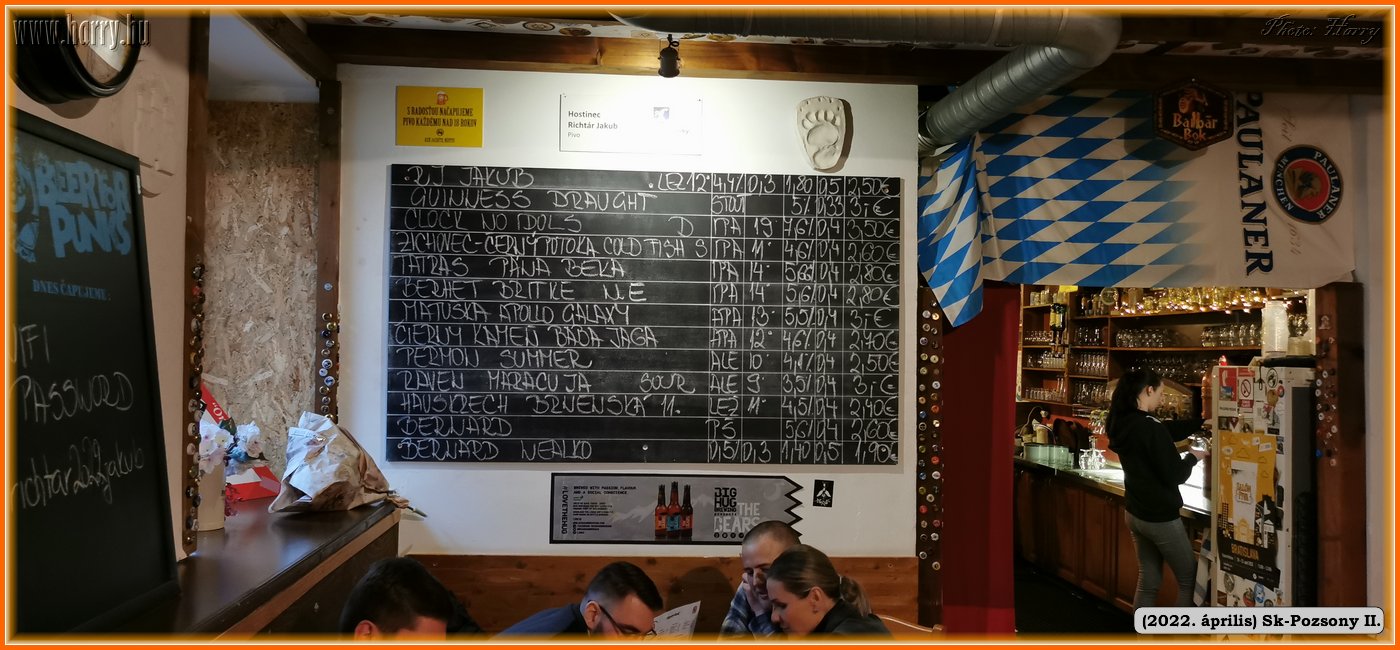 www.horry.hu
Photo: Horry
BEER FOR
PUNKS
DNES ČAPUJEME:
PASSWORD
richtar222jakub
S RADOSŤOU NAČAPUJEME
PIVO KAŽDÉMU NAD 18 ROKOV
Hostinec
Richtár Jakub
Pivo
RJ JAKUB LEŽ 12° 4,4/0,3 1,80/0,5 2,50€
GUINNESS DRAUGHT STOUT 5% 0,33 3,-€
CLOCK NO IDOLS D IPA 19 7,6/0,4 3,50€
ZICHOVEC-ČERNÝ POTOKA COLD FISH S IPA 11° 4,6/0,4 2,60€
TATRAS PANA BEKA IPA 14° 5,6/0,4 2,80€
BERHET BRITKE NE IPA 14° 5,6/0,4 2,80€
MATUŠKA APOLLO GALAXY APA 13° 5,5/0,4 3,-€
ČIERNY KAMEŇ BABA JAGA APA 12° 4,6/0,4 2,40€
PERMON SUMMER ALE 10° 4,1/0,4 2,50€
RAVEN MARACUJA SOUR ALE 9° 3,5/0,4 3,-€
HAUSKRECH BRNENSKÁ 11. LEŽ 11° 4,5/0,4 2,40€
BERNARD PŠ 5,6/0,4 2,60€
BERNARD NEALKO 0,5/0,3 1,40/0,5 1,90€
#LOVETHEHUG
BREWED WITH PASSION, FLAVOUR
AND A SOCIAL CONSCIENCE
BIG
HUG
BREWING
THE
BEARS
Baltbär
Bok
PAULANER
PAULANER
MÜNCHEN
SALÓN
PIVA
BRATISLAVA
(2022. április) Sk-Pozsony II.